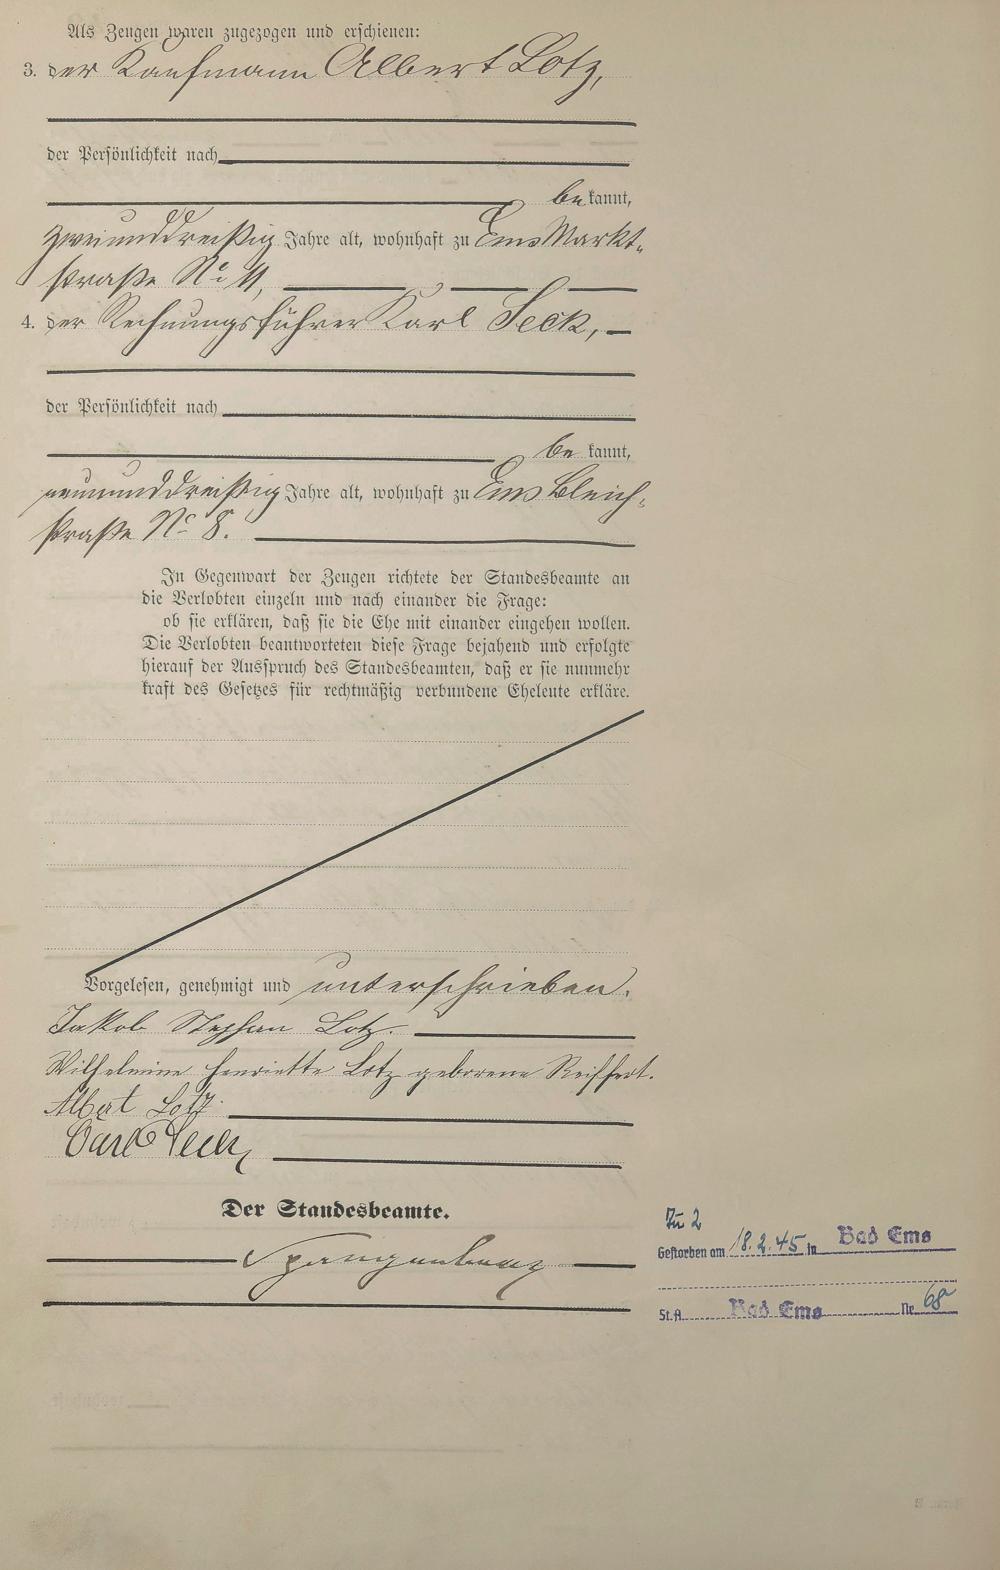 Als Zeugen waren zugezogen und erschienen:
3. der Kaufmann Albert Lotz,
der Persönlichkeit nach
be kannt,
zweiunddreißig Jahre alt, wohnhaft zu Ems Markt-
straße No 11,
4. der Rechnungsführer Karl Seck,
der Persönlichkeit nach
be kannt,
neununddreißig Jahre alt, wohnhaft zu Ems Bleich-
straße No 8.
In Gegenwart der Zeugen richtete der Standesbeamte an
die Verlobten einzeln und nach einander die Frage:
ob sie erklären, daß sie die Ehe mit einander eingehen wollen.
Die Verlobten beantworteten diese Frage bejahend und erfolgte
hierauf der Ausspruch des Standesbeamten, daß er sie nunmehr
kraft des Gesetzes für rechtmäßig verbundene Eheleute erkläre.
Vorgelesen, genehmigt und unterschrieben.
Jakob Stephan Lotz.
Wilhelmine Henriette Lotz geborene Reiffert.
Albert Lotz.
Carl Seck,
Der Standesbeamte.
Spangenberg
Zu 2
Gestorben am 18.2.45 in Bad Ems
St.A. Bad Ems Nr. 68